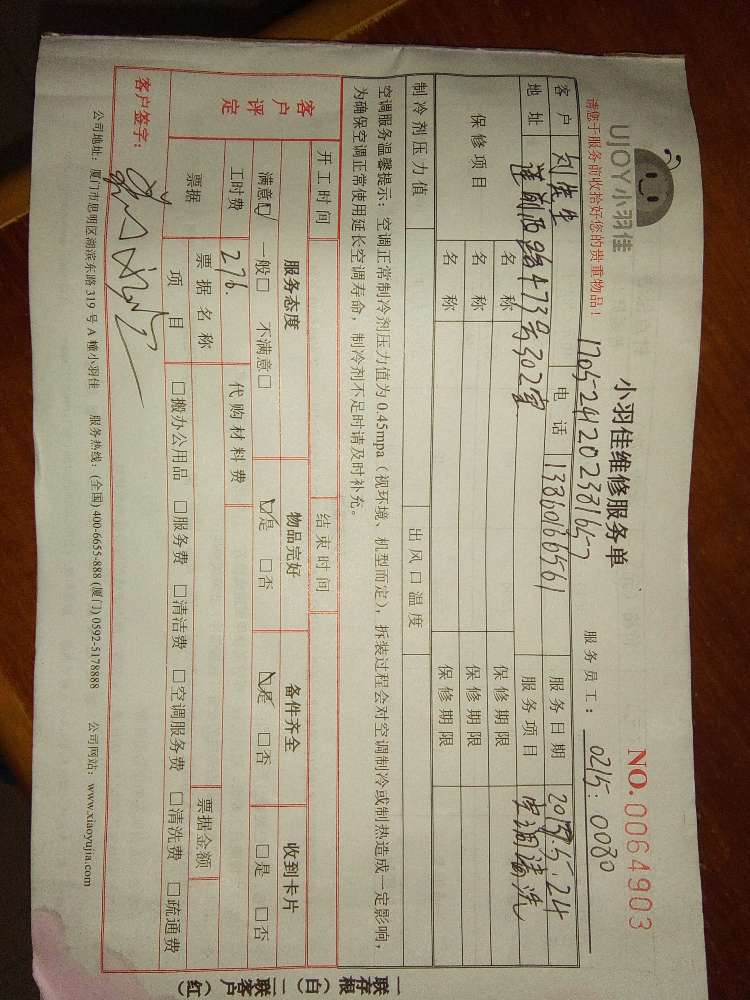 UJOY小羽佳
小羽佳维修服务单
NO. 0064903
请您于服务前收拾好您的贵重物品!
1705241202381657
服务员工: 0215.0080
客户 刘先生 电话 13860166561 服务日期 2017.5.24
地址 莲前西路473号302室 服务项目 空调清洗
保修项目 名称 保修期限
名称 保修期限
名称 保修期限
制冷剂压力值 出风口温度
空调服务温馨提示: 空调正常制冷剂压力值为 0.45mpa (视环境、机型而定), 拆装过程会对空调制冷或制热造成一定影响,
为确保空调正常使用延长空调寿命, 制冷剂不足时请及时补充。
开工时间 结束时间
客户评定 服务态度 物品完好 备件齐全 收到卡片
满意☑ 一般□ 不满意□ ☑是 □否 ☑是 □否 □是 □否
工时费 276. 代购材料费
票据 票据名称 票据金额
项目 □搬办公用品 □服务费 □清洁费 □空调服务费 □清洗费 □疏通费
客户签字:
公司地址: 厦门市思明区湖滨东路 319 号 A 幢小羽佳 服务热线: (全国) 400-6655-888 (厦门) 0592-5178888 公司网站: www.xiaoyujia.com
一联存根(白) 二联客户(红)